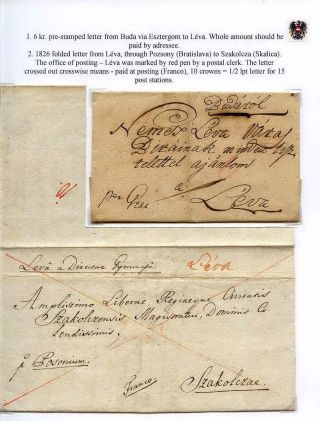 1. 6 kr. pre-stamped letter from Buda via Esztergom to Léva. Whole amount should be
paid by adressee.
2. 1826 folded letter from Léva, through Pozsony (Bratislava) to Szakolcza (Skalica).
The office of posting – Léva was marked by red pen by a postal clerk. The letter
crossed out crosswise means - paid at posting (Franco), 10 crowns = 1/2 lpt letter for 15
post stations.
Budárol
Nemes Léva Város
Birainak minden
telettel ajánlom
per Gran
a
Léva
Léva a Directe Gymnas.
Léva
Amplissimo Liberae Regiaeque Civitatis
Szakolczensis Magistratui, Dominis Co
lendissimis.
p Posonium
Franco
Szakolczae.